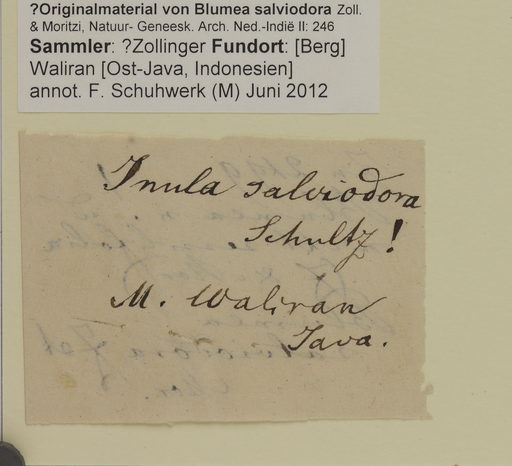 ?Originalmaterial von Blumea salviodora Zoll.
& Moritzi, Natuur- Geneesk. Arch. Ned.-Indië II: 246
Sammler: ?Zollinger Fundort: [Berg]
Waliran [Ost-Java, Indonesien]
annot. F. Schuhwerk (M) Juni 2012
Inula salviodora
Schultz!
M. Waliran
Java.